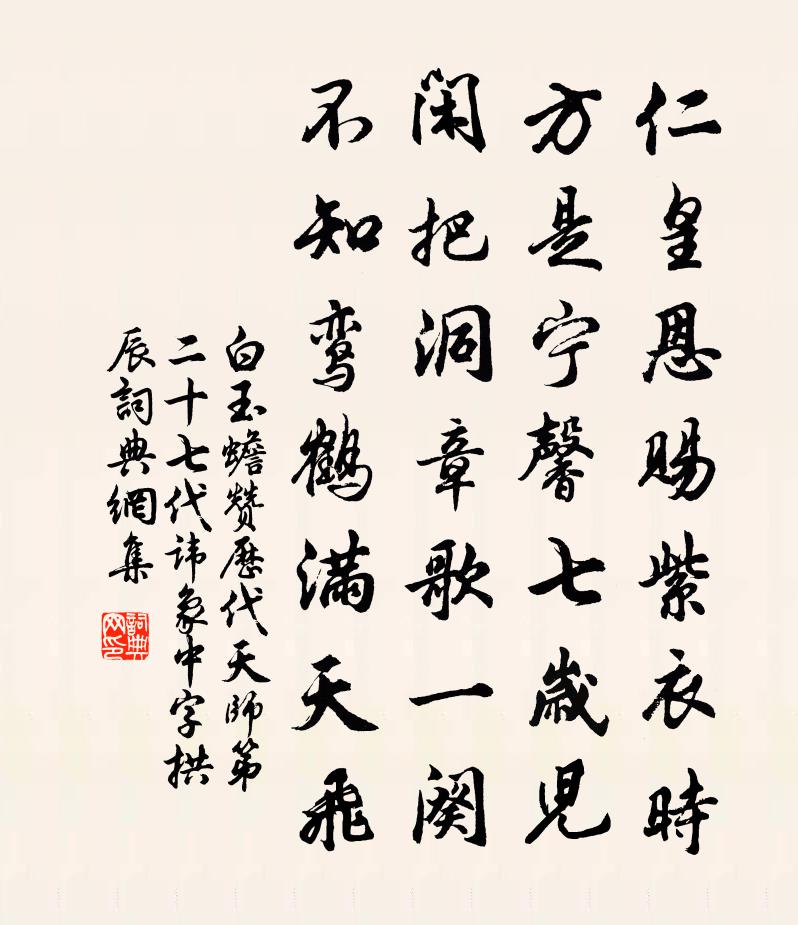 仁皇恩赐紫衣時
方是宁馨七歲児
闲把洞章歌一阕
不知鸾鶴满天飛
白玉蟾赞歷代天師第
二十七代讳象中字拱
辰詞典網集
詞典网印